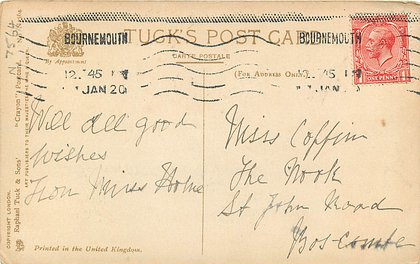 N 7564
BOURNEMOUTH
12. 45 P
JAN 20
TUCK'S POST CAR
CARTE POSTALE
(FOR ADDRESS ONLY.)
BOURNEMOUTH
12. 45 P
JAN 20
ONE PENNY
By Appointment
COPYRIGHT LONDON.
Raphael Tuck & Sons'
"Crayon"
ART PUBLISHERS TO THEIR MAJESTIES THE KING &
Will all good
wishes
From Miss
Miss Coffin
The Nook
St John Road
Boscombe
Printed in the United Kingdom.